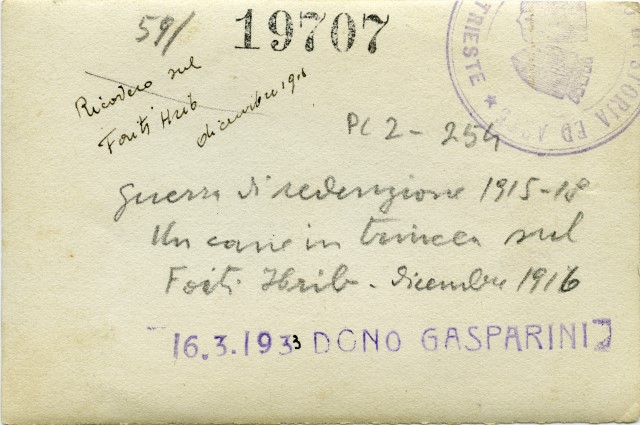 59/
19707
TRIESTE ★
STORIA ED A
Ricovero sul
Faiti Hrib
dicembre 1916
PC 2 - 254
Guerra di redenzione 1915-18
Un cane in trincea sul
Faiti Hrib - dicembre 1916
16.3.1933 DONO GASPARINI